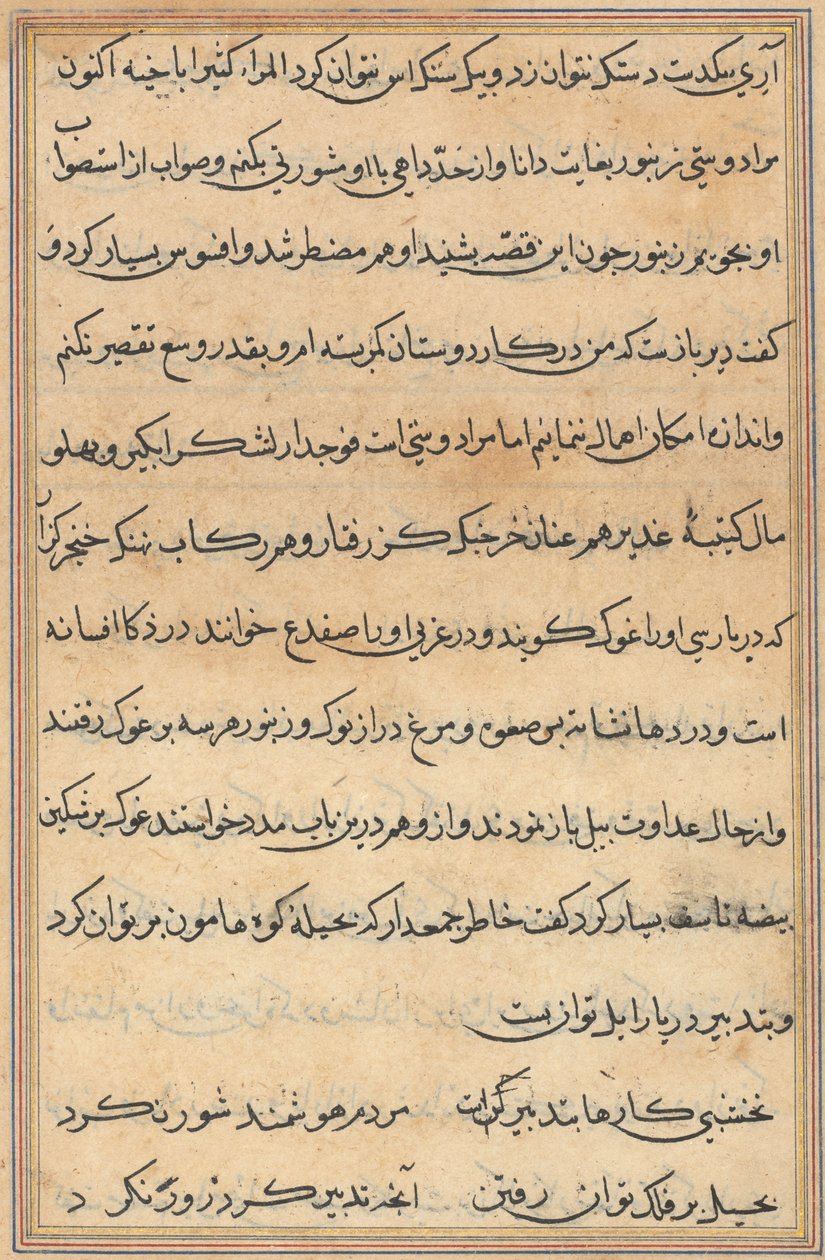 آرِي بيكدست دستك نتوان زد و بيك سنك اس نتوان كرد المراء كثير اباخيه اكنون
مرا دوستي زنبور بغايت دانا و از حَدّ داهي با او مشورتي بكنم و صواب از استصواب
او بجويم زنبور جون اين قصّه بشنيد او هم مضطر شد و افسوس بسيار كرد وَ
كفت دير بازست كه من در كار دوستان كمر بسته ام و بقدر وسع تقصير نكنم
و اندازه امكان اهمال ننمايم اما مرا دوستي است فوجدار لشكر ابكير و بهلو
مال كتيبهٔ غدير هم عنان خرجنك كز رفتار و هم ركاب نهنك خنجر كزار
كه در پارسي او را غوك كويند و در عربي او را صفدع خوانند در ذكا افسانه
است و در دها نشانه بس صعوه و مرغ دراز نوك و زنبور هر سه بر غوك رفتند
و از حال عداوت بيل باز نمودند و از و هم درين باب مدد خواستند غوك بر شكستن
بيضه تاسف بسيار كرد كفت خاطر جمعدار كه بحيلهٔ كوه هامون بر توان كرد
و بتدبير دريا را بل توان بست
نخشبي كارها بتدبير كن است مردم هوشمند شور نكرد
بحيل بر فلك توان رفتن آنجه تدبير كرد زور نكرد